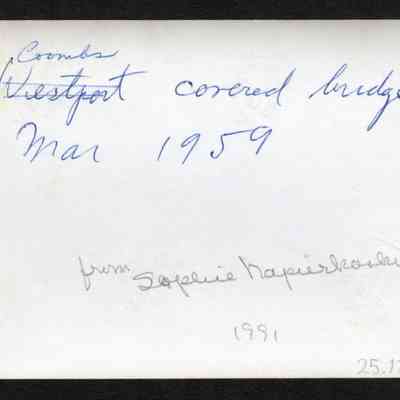 Coombs
Westport covered bridge
Mar 1959
from Sophie
1991
25.1